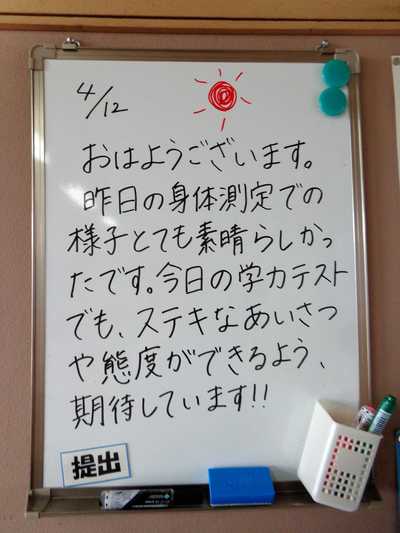 4/12
おはようございます。
昨日の身体測定での
様子とても素晴らしかっ
たです。今日の学力テスト
でも、ステキなあいさつ
や態度ができるよう、
期待しています!!
提出